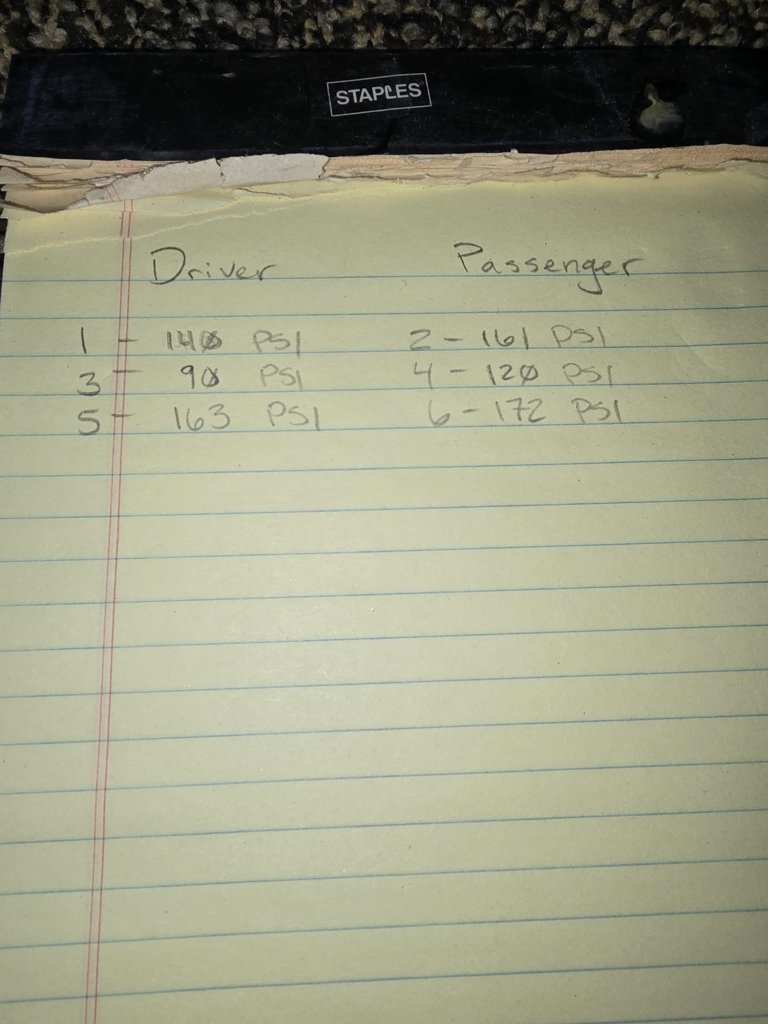 STAPLES
Driver Passenger
1 - 140 PSI 2 - 161 PSI
3 - 90 PSI 4 - 120 PSI
5 - 163 PSI 6 - 172 PSI